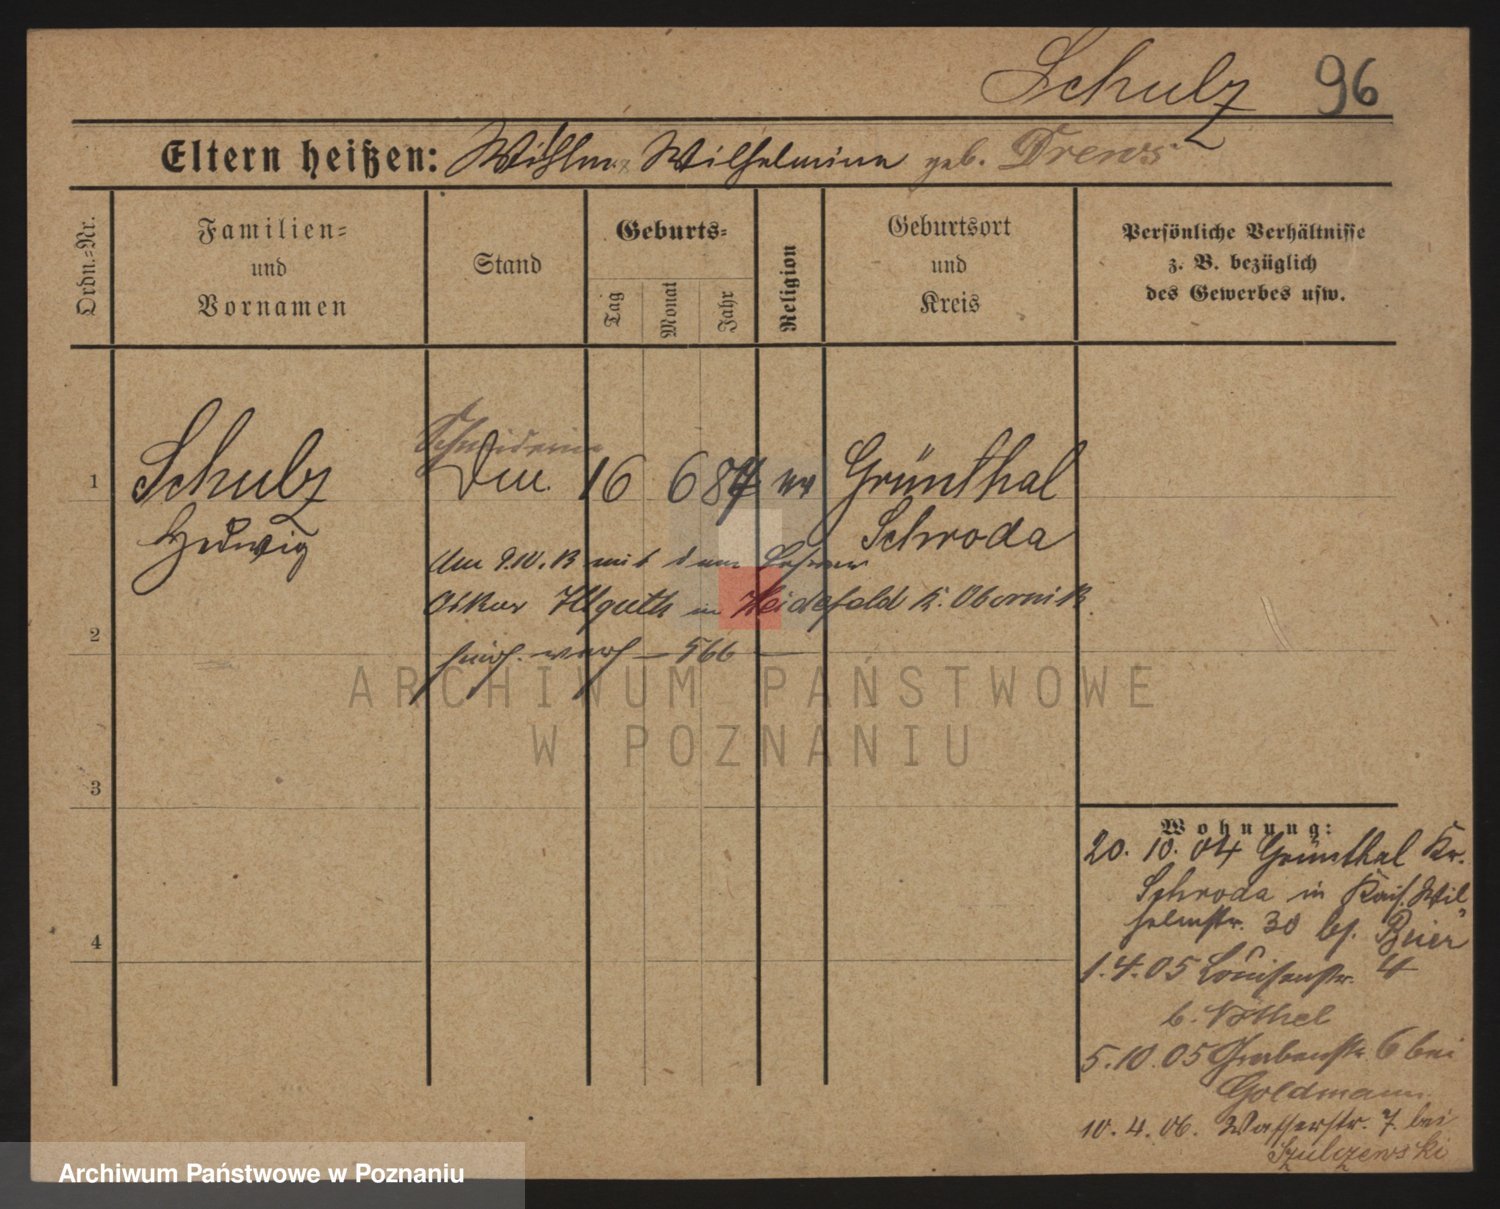 Schulz 96
Eltern heißen: Wilhelm Wilhelmine geb. Drews
Ordn.-Nr.
Familien-
und
Vornamen
Stand
Geburts-
Tag
Monat
Jahr
Religion
Geburtsort
und
Kreis
Persönliche Verhältnisse
z. B. bezüglich
des Gewerbes usw.
Schneiderin
1 Schulz 16 6 87 ev Grünthal
Hedwig Schroda
den 9.10.13 mit dem Lehrer
Oskar Illguth in Heidefeld K. Obornik
2
566
3
4
Wohnung:
20. 10. 04 Grünthal Kr.
Schroda in Kais. Wil-
helmstr. 30 bei Beier
1.4.05 Louisenstr. 4
b. Nöthel
5.10.05 Grabenstr. 6 bei
Goldmann
10.4.06. Wasserstr. 7 bei
Szulczewski
ARCHIWUM PAŃSTWOWE
W POZNANIU
Archiwum Państwowe w Poznaniu